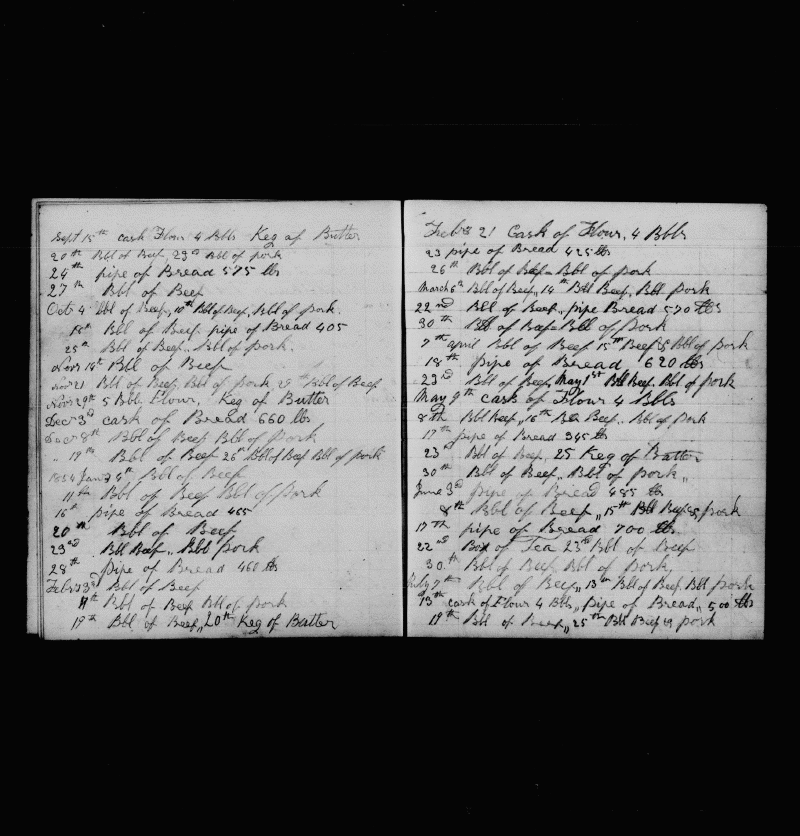 Sept 15th cask Flour 4 Bbls Keg of Butter
20th Bbl of Beef, 23d Bbl of pork
24th pipe of Bread 575 lbs
27th Bbl of Beef
Oct 4 Bbl of Beef,, 10th Bbl of Beef, Bbl of pork.
15th Bbl of Beef pipe of Bread 405
25th Bbl of Beef,, Bbl of pork.
Novr 14th Bbl of Beef
Novr 21 Bbl of Beef, Bbl of Pork Bbl of Beef
Novr 29th 5 Bbl Flour, Keg of Butter
Decr 3d cask of Bread 660 lbs
Decr 8th Bbl of Beef Bbl of pork
" 19th Bbl of Beef 26th Bbl of Beef Bbl of pork
1854 Jany 4th Bbl of Beef
11th Bbl of Beef Bbl of pork
16th pipe of Bread 455
20th Bbl of Beef
23rd Bbl Beef,, Bbl pork
28th pipe of Bread 460 lbs
Feby 3d Bbl of Beef
11th Bbl of Beef Bbl of pork
19th Bbl of Beef,, 20th Keg of Butter
Feby 21 Cask of Flour, 4 Bbls
23 pipe of Bread 425 lbs
26th Bbl of Beef - Bbl of pork
March 6th Bbl of Beef,, 14th Bbl Beef, Bbl pork
22nd Bbl of Beef,, pipe Bread 570 lbs
30th Bbl of Beef Bbl of pork
7th april Bbl of Beef 15th Beef & Bbl of pork
18th pipe of Bread 620 lbs
23d Bbl of Beef, May 1st Bbl Beef, Bbl of pork
May 9th cask of Flour 4 Bbls
8th Bbl Beef,, 16th Bbl Beef,, Bbl of pork
17th pipe of Bread 345 lb
23d Bbl of Beef, 25 Keg of Butter
30th Bbl of Beef,, Bbl of pork,,
June 3d pipe of Bread 485 lb
8th Bbl of Beef,, 15th Bbl Beef & pork
17th pipe of Bread 700 lbs
22nd Box of Tea 23rd Bbl of Beef
30th Bbl of Beef, Bbl of pork
July 7th Bbl of Beef,, 13th Bbl of Beef, Bbl pork
13th cask of Flour 4 Bbls,, pipe of Bread,, 500 lbs
19th Bbl of Beef,, 25th Bbl Beef & pork